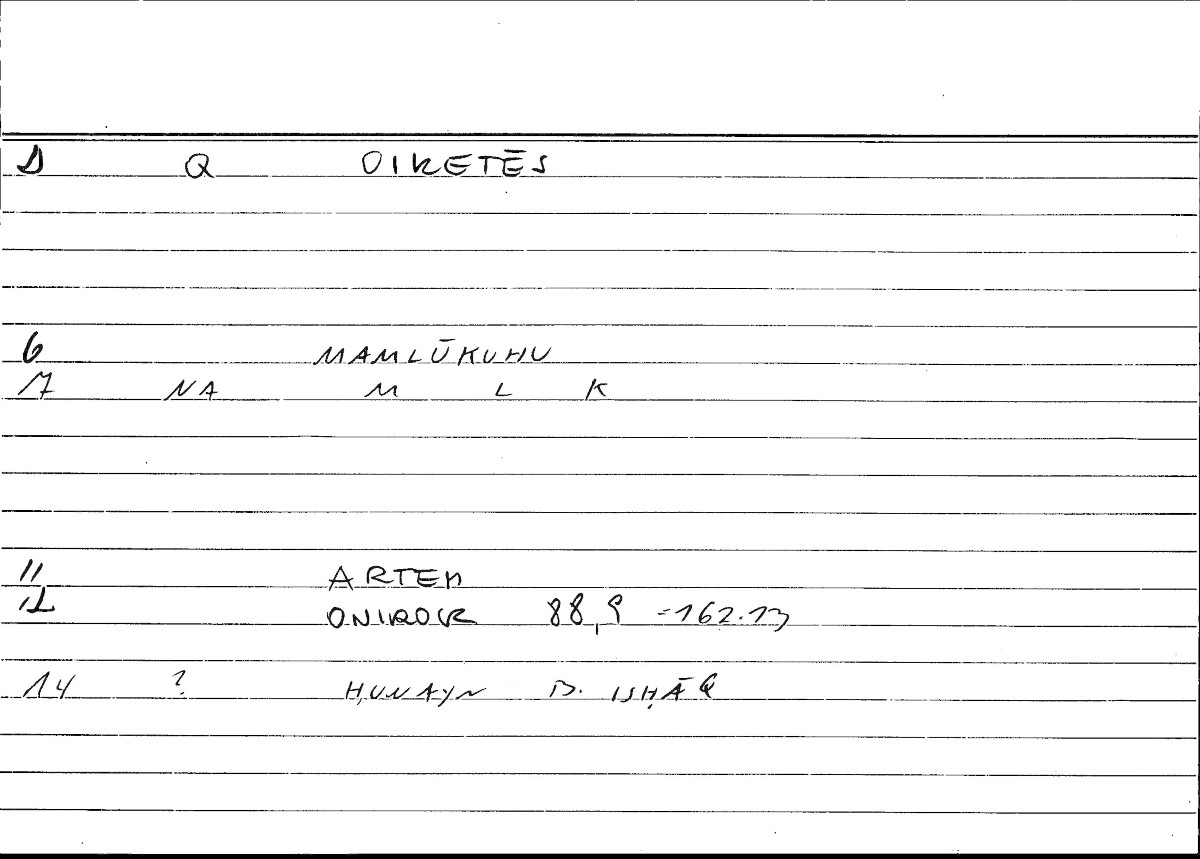 1 Q OIKETĒS
6 MAMLŪKUHU
7 NA M L K
11 ARTEM
12 ONIROCR 88,9 =162.13
14 ? ḤUNAYN B. ISḤĀQ